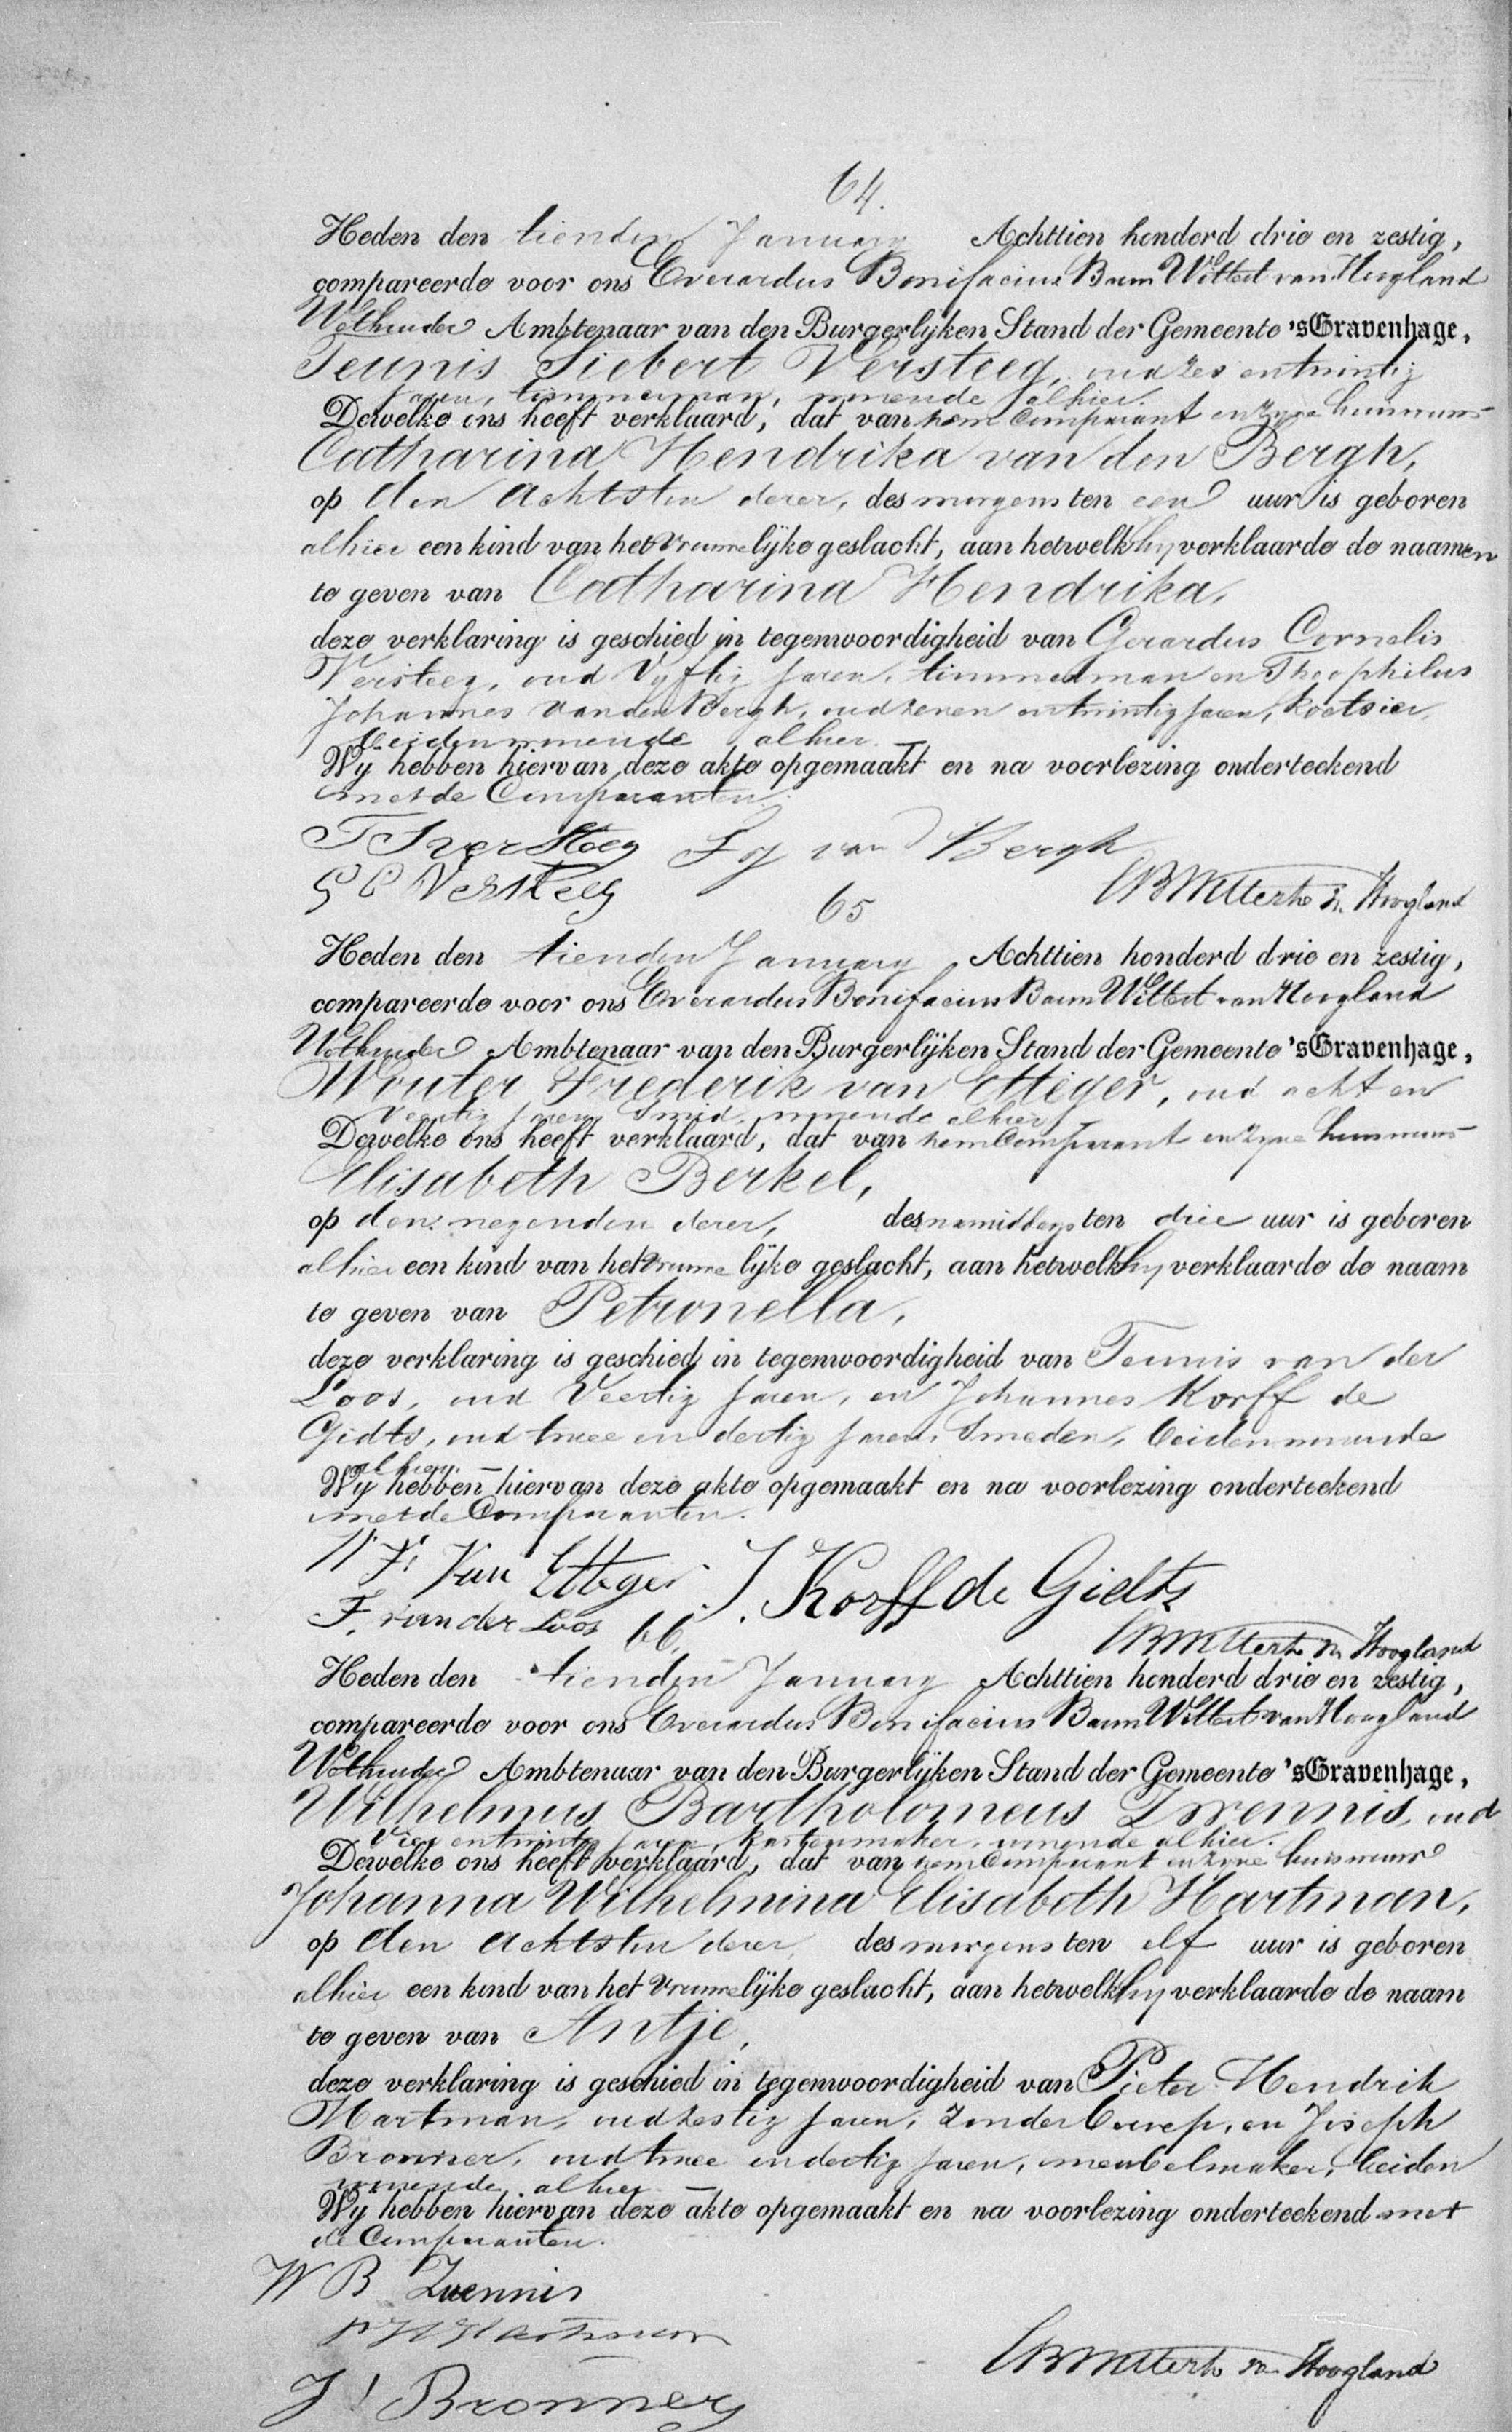 64.
Heden den tienden January Achttien honderd drie en zestig,
compareerde voor ons Everardus Bonifacius Baron Wittert van Hoogland
Wethouder Ambtenaar van den Burgerlijken Stand der Gemeente 'sGravenhage,
Teunis Siebert Versteeg, oud zes en twintig
jaren, timmerman, wonende alhier.
Dewelke ons heeft verklaard, dat van hem Comparant en zyne huisvrouw
Catharina Hendrika van den Bergh,
op den achtsten dezer, des morgens ten een uur is geboren
alhier een kind van het vrouwelijke geslacht, aan hetwelk hy verklaarde de naamen
te geven van Catharina Hendrika,
deze verklaring is geschied in tegenwoordigheid van Gerardus Cornelis
Versteeg, oud vyftig jaren, timmerman en Theophilus
Johannes van den Bergh, oud zeven en twintig jaren, koetsier,
beiden wonende alhier.
Wij hebben hiervan deze akte opgemaakt en na voorlezing onderteekend
met de Comparanten.
T S versteeg van Bergh
G C Versteeg
EBWittert v. Hoogland
65
Heden den tienden January Achttien honderd drie en zestig,
compareerde voor ons Everardus Bonifacius Baron Wittert van Hoogland
Wethouder Ambtenaar van den Burgerlijken Stand der Gemeente 'sGravenhage,
Wouter Frederik van Etteger, oud acht en
veertig jaren, Smid, wonende alhier
Dewelke ons heeft verklaard, dat van hem Comparant en zyne huisvrouw
Elisabeth Berkel,
op den negenden dezer, des namiddags ten drie uur is geboren
alhier een kind van het vrouwelijke geslacht, aan hetwelk hy verklaarde de naam
te geven van Petronella,
deze verklaring is geschied in tegenwoordigheid van Teunis van der
Loos, oud veertig jaren, en Johannes Korff de
Gidts, oud twee en dertig jaren, Smeden, beiden wonende
alhier.
Wij hebben hiervan deze akte opgemaakt en na voorlezing onderteekend
met de Comparanten.
W F. Van Etteger J. Korff de Gidts
T. van der Loos
EBWittert v. Hoogland
66.
Heden den tienden January Achttien honderd drie en zestig,
compareerde voor ons Everardus Bonifacius Baron Wittert van Hoogland
Wethouder Ambtenaar van den Burgerlijken Stand der Gemeente 'sGravenhage,
Wilhelmus Bartholomeus Zwennis, oud
vier en twintig jaren, kastenmaker, wonende alhier.
Dewelke ons heeft verklaard, dat van hem Comparant en zyne huisvrouw
Johanna Wilhelmina Elisabeth Hartman,
op den achtsten dezer, des morgens ten elf uur is geboren
alhier een kind van het vrouwelijke geslacht, aan hetwelk hy verklaarde de naam
te geven van Antje,
deze verklaring is geschied in tegenwoordigheid van Pieter Hendrik
Hartman, oud zestig jaren, zonder beroep, en Joseph
Bronner, oud twee en dertig jaren, meubelmaker, beiden
wonende alhier
Wij hebben hiervan deze akte opgemaakt en na voorlezing onderteekend met
de Comparanten.
W B Zwennis
P H Hartman
EBWittert v. Hoogland
J. Bronner